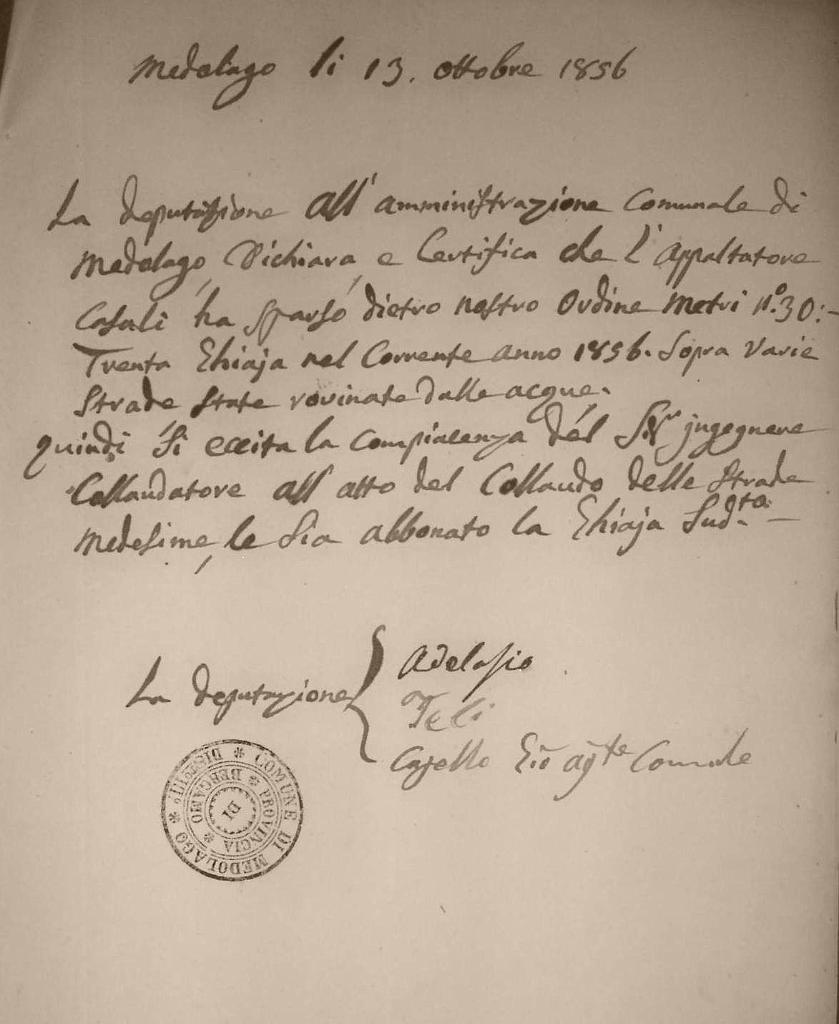 Medolago li 13. ottobre 1856
La deputazione all'amministrazione Comunale di
Medolago, Dichiara, e Certifica che l'Appaltatore
Casali ha sparso dietro nostro Ordine Metri N.º 30:-
Trenta Ghiaja nel Corrente anno 1856. Sopra Varie
Strade State rovinate dalle acque.
quindi Si eccita la Compiacenza del Sig.r jngegnere
Collaudatore all'atto del Collaudo delle Strade
Medesime, le Sia abbonato la Ghiaja Sud.ta -
La deputazione
Adelasio
Teli
Comle
COMUNE DI MEDOLAGO * DISTto II.º *
PROVINCIA * BERGAMO *
DI